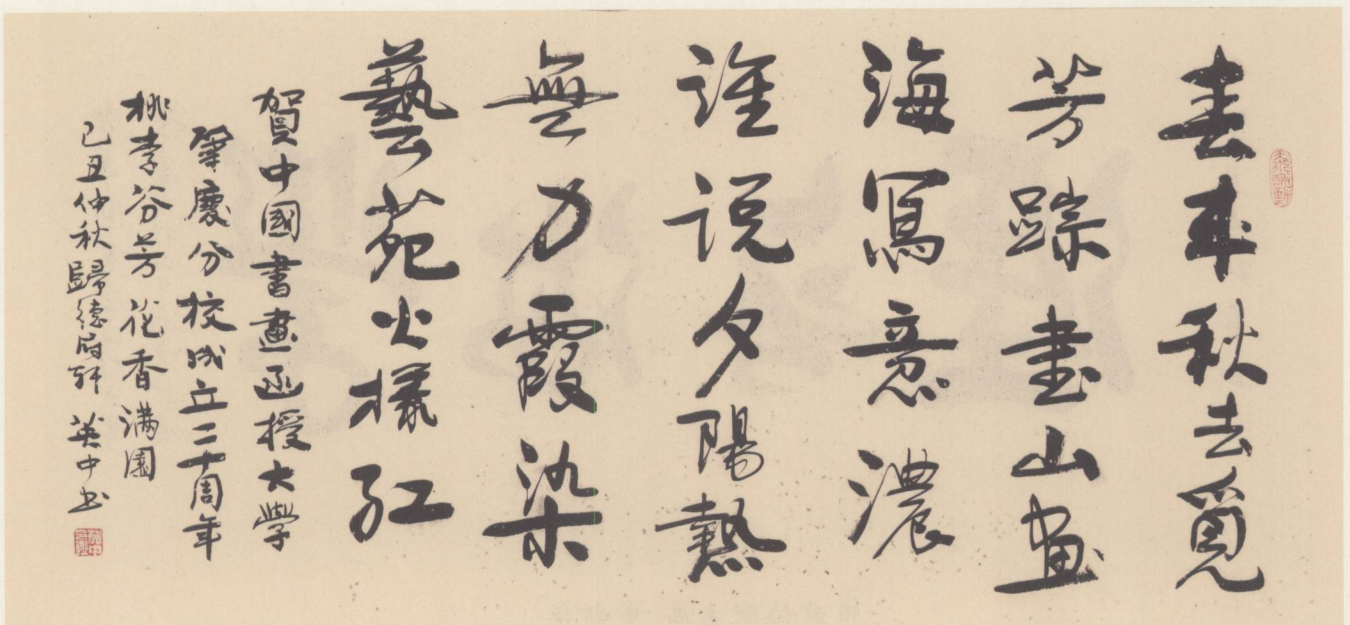 春來秋去覓
芳踪書山畫
海寫意濃
誰説夕陽熱
無力霞染
藝苑火樣紅
賀中國書畫函授大學
肇慶分校成立二十周年
桃李芬芳花香满園
己丑仲秋歸德府轩 英中书